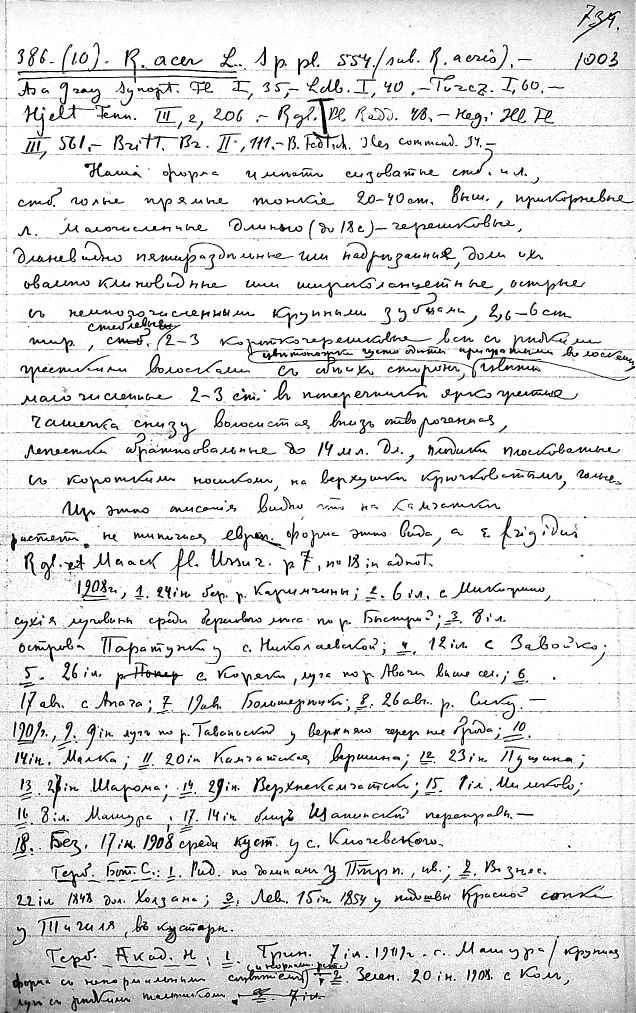 739.
386. (10). R. acer L. Sp. pl. 554. (sub. R. acris). –
1003
Asa Gray Synopt. Fl I, 35, – Ldb. I, 40. – Turcz. I, 60. –
Hjelt Fenn. III, 2, 206 – Rgl. Pl. Radd. 48. – Hegi Ill Fl
III, 561. – Britt. Br. II, 111. – B. Fedtsch. Iles command. 34. –
Наша форма имѣетъ сизоватые стб. и л.,
стб. голые прямые тонкіе 20–40 cm. выш., прикорневые
л. малочисленные длинно (до 18 c) – черешковые,
дланевидно пятираздѣльные или надрѣзанные, доли ихъ
овально клиновидные или широколанцетные, острые
съ немногочисленными крупными зубцами, 2,6–6 cm
шир., стеблевые 2–3 короткочерешковые всѣ съ рѣдкими
цвѣтоножки густо одѣты прижатыми волосками
волосками съ обѣихъ сторонъ, цвѣтки
малочисленные 2–3 cm. въ поперечникѣ яркожелтые
чашечка снизу волосистая внизъ отвороченная,
лепестки обратноовальные до 14 мл. дл., плодики плосковатые
съ короткимъ носикомъ, на верхушкѣ крючковатымъ, голые.
Изъ этого описанія видно, что на Камчаткѣ
растетъ не типичная европ. форма этого вида, а ε frigidus
Rgl. et Maack fl. Ussur. p 7, no 18 in adnot.
1908 г., 1. 24 iн. бер. р. Каримчины; 2. 6 iл. с. Микижино,
сухія луговины среди березоваго лѣса по р. Быстрой; 3. 8 iл.
острова Паратунки у с. Николаевской; 4. 12 iл. с Завойко;
5. 26 iл. с Коряки, луга по р. Авачи выше сел.; 6.
17 ав. с Апача; 7. 19 ав. Большерѣцкъ; 8. 26 авг. р.
1909 г., 9. 9 iн. лугъ по р. у верхняго; 10.
14 iн. Малка; 11. 20 iн Камчатская вершина; 12. 23 iн. Пущина;
13. 27 iн Шарома; 14. 29 iн. Верхнекамчатскъ; 15. 1 iл. Мильково;
16. 8 iл. Машура; 17. 14 iл. близъ Щапинской переправы. –
18. Без. 17 iн. 1908 среди куст. у с. Ключевского.
Герб. Бот. С.: 1. Рид. по долинамъ у Птрп., iв.; 2. Вознес.
22 iл 1848 дол. Холзана; 3. Лев. 15 iн. 1854 у подошвы Красной сопки
у Тигиля, въ кустарн.
Герб. Акад. Н.: 1. Трин. 7 iл. 1909 г. с. Машура (крупная
форма съ ненормальными) 2. Зелен. 20 iн. 1908. с Коль,
лугъ съ рѣдкимъ тальникомъ.